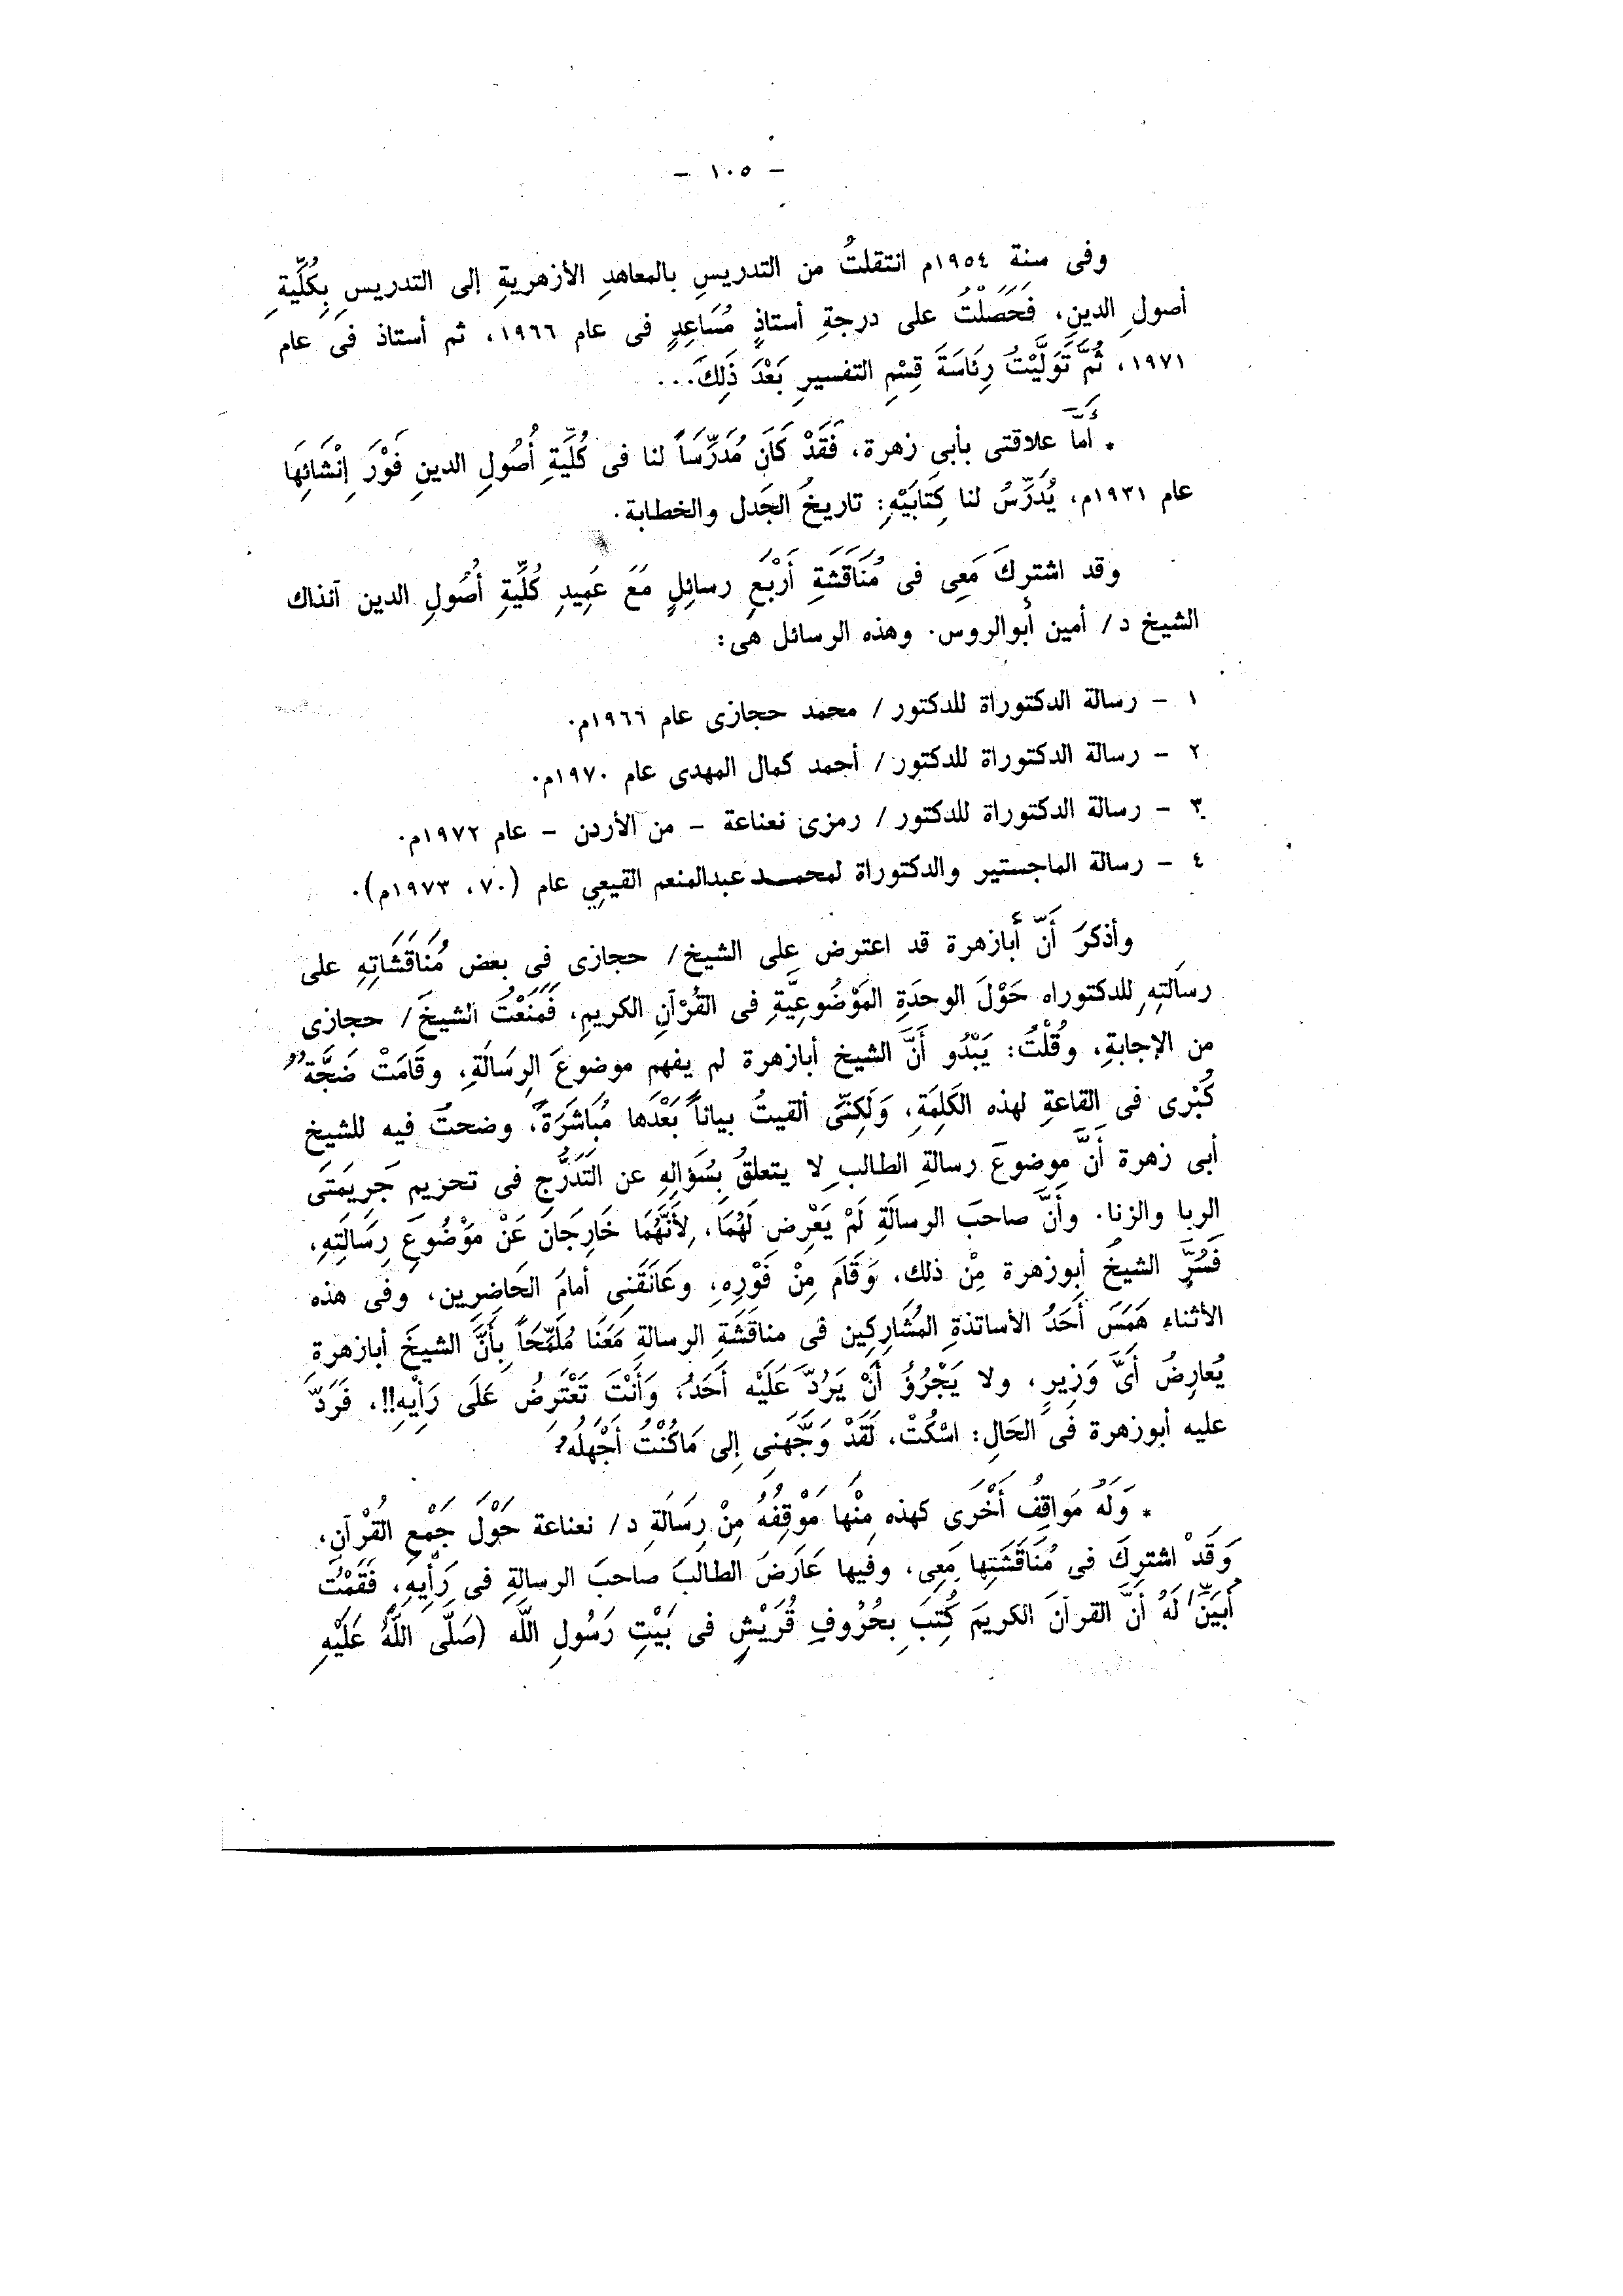 - ١٠٥ -
وفى سنة ١٩٥٤م انتقلتُ من التدريسِ بالمعاهدِ الأزهريةِ إلى التدريسِ بِكُلِّيةِ
أصولِ الدينِ، فَحَصَلْتُ على درجةِ أستاذٍ مُسَاعِدٍ فى عام ١٩٦٦، ثم أستاذ فى عام
١٩٧١، ثُمَّ تَوَلَّيْتُ رِئَاسَةَ قِسْمِ التفسيرِ بَعْدَ ذَلِكَ...
* أمَّا علاقتى بأبى زهرة، فَقَدْ كَانَ مُدَرِّسَاً لنا فى كُلِّيَةِ أُصُولِ الدينِ فَوْرَ إنْشَائِهَا
عام ١٩٣١م، يُدَرِّسُ لنا كِتَابَيْهِ: تاريخُ الجَدل والخطابة.
وقد اشتركَ مَعِى فى مُنَاقَشَةِ أَرْبَعِ رسائِلٍ مَعَ عَمِيدِ كُلِّيَّةِ أُصُولِ الدين آنذاك
الشيخ د/ أمين أبوالروس. وهذه الرسائل هى:
١ - رسالة الدكتوراة للدكتور/ محمد حجازى عام ١٩٦٦م.
٢ - رسالة الدكتوراة للدكتور/ أحمد كمال المهدى عام ١٩٧٠م.
٣ - رسالة الدكتوراة للدكتور/ رمزى نعناعة - من الأردن - عام ١٩٧٢م.
٤ - رسالة الماجستير والدكتوراة لمحمد عبدالمنعم القيعي عام (٧٠، ١٩٧٣م).
وأذكرَ أَنَّ أبازهرة قد اعترض على الشيخ/ حجازى فِى بعض مُنَاقَشَاتِهِ على
رسالتِهِ للدكتوراه حَوْلَ الوحدَةِ المَوْضُوعِيَّةِ فى القُرْآنِ الكريمِ، فَمَنَعْتُ الشيخَ/ حجازى
من الإجابةِ، وقُلْتُ: يَبْدُو أَنَّ الشيخ أبازهرة لم يفهم موضوعَ الرِسَالَةِ، وقَامَتْ ضَجَّةٌ
كُبْرى فى القاعةِ لهذه الكَلِمَةِ، وَلَكِنِّى ألقيتُ بياناً بَعْدَها مُبَاشَرَةً، وضحتُ فيه للشيخ
أبى زهرة أَنَّ موضوعَ رسالةِ الطالبِ لا يتعلقُ بِسُؤالِهِ عن التَدَرُّجِ فى تحريمِ جَرِيمَتَى
الربا والزنا. وأَنَّ صاحبَ الرسالَةِ لَمْ يَعْرِض لَهُمَا، لِأَنَّهُمَا خَارِجَانَ عَنْ مَوْضُوعِ رِسَالَتِهِ،
فَسُرَّ الشيخُ أبوزهرة مِنْ ذلك، وَقَامَ مِنْ فَوْرِهِ، وعَانَقَنِى أمامَ الحَاضِرِين، وفى هذه
الأثناءِ هَمَسَ أَحَدُ الأساتذةِ المُشَارِكِين فى مناقَشَةِ الرسالةِ مَعَنَا مُلَمِّحَاً بِأَنَّ الشيخَ أبازهرةِ
يُعارِضُ أَىَّ وَزِيرٍ، ولا يَجْرُؤُ أَنْ يَرُدَّ عَلَيْه أَحَدٌ، وَأَنْتَ تَعْتَرِضُ عَلَى رَأْيِهِ!!، فَرَدَّ
عليه أبوزهرة فى الحَالِ: اسْكُتْ، لَقَدْ وَجَّهَنِى إلى مَاكُنْتُ أَجْهَلُهُ؟
* وَلَهُ مَواقِفُ أُخْرَى كهذه مِنْها مَوْقِفُهُ مِنْ رِسَالَةِ د/ نعناعة حَوْلَ جَمْعِ القُرْآنِ،
وَقَدْ اشتركَ فى مُنَاقَشَتِها مَعِى، وفيها عَارَضَ الطالبَ صاحبَ الرسالةِ فى رَأْيِهِ، فَقُمْتُ
أُبَيِّنُ لَهُ أَنَّ القرآنَ الكريمَ كُتِبَ بِحُرُوفِ قُرَيْشٍ فى بَيْتِ رَسُولِ اللَّه (صَلَّى اللَّهُ عَلَيْهِ